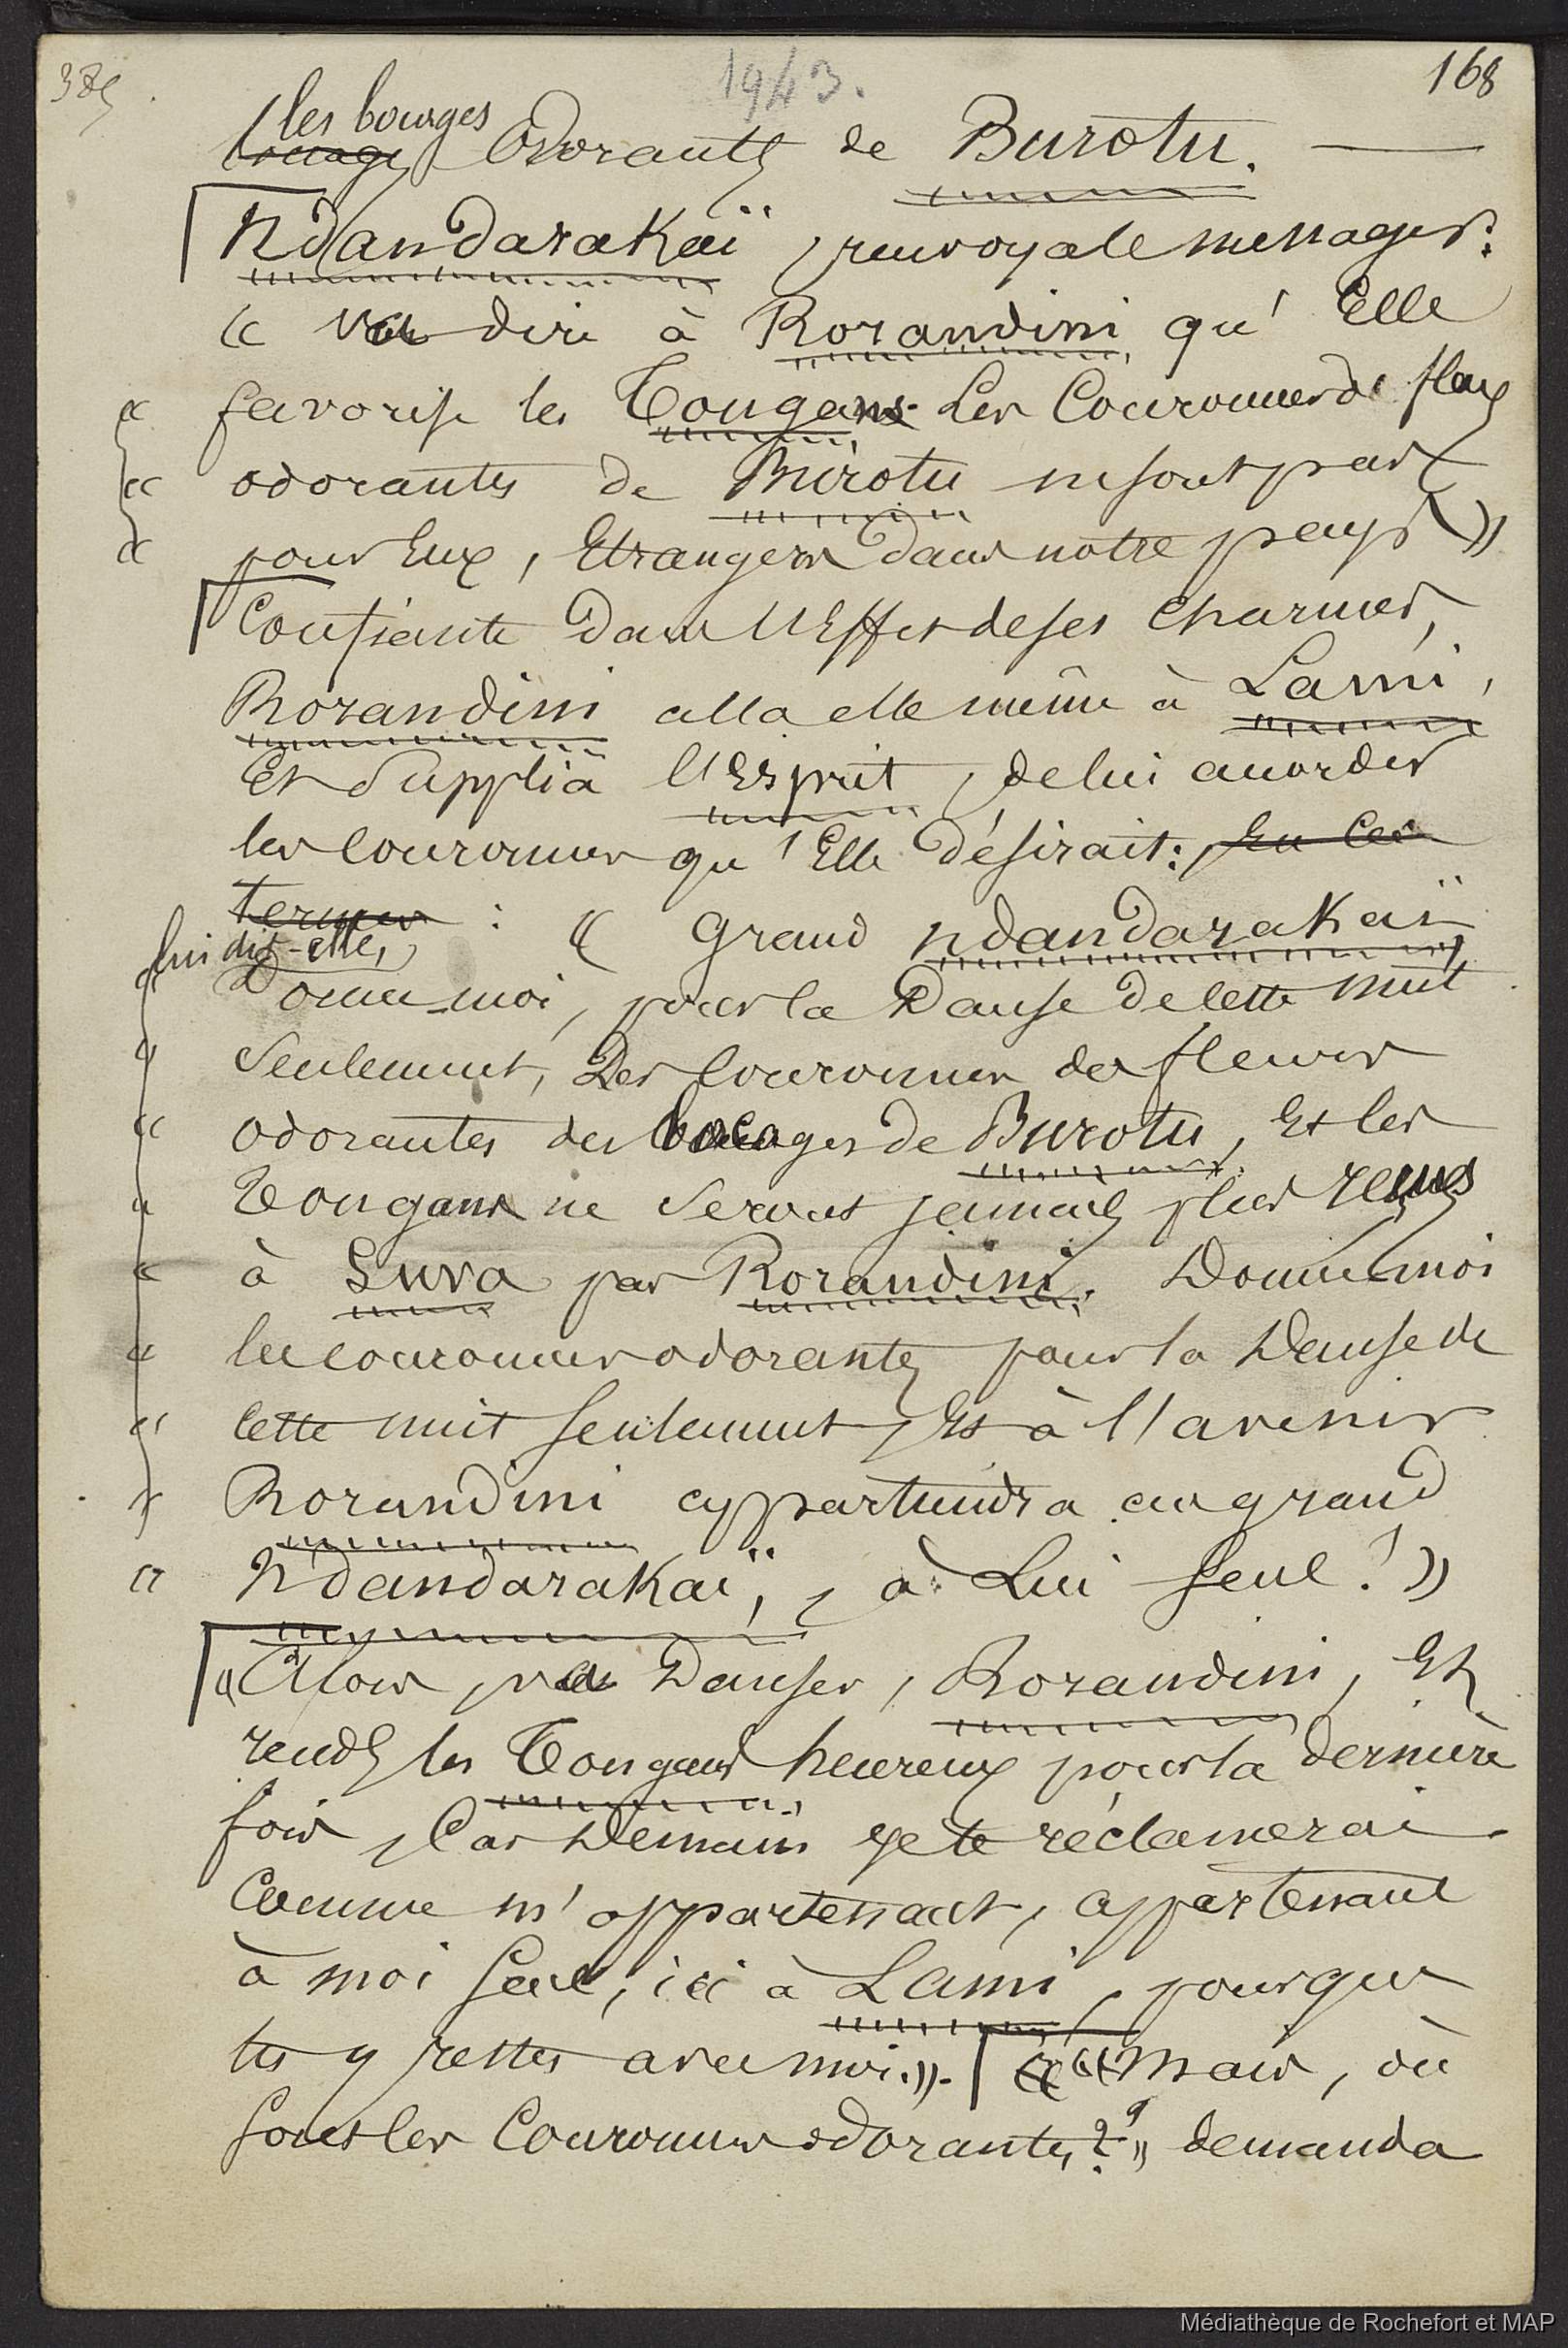 385
1943.
168
les bourges
bocages Odorants de Burotu.
Ndandarakaï, renvoya le messager:
« va dire à Rorandini qu'Elle
« favorise les Tongans. Les Couronnes de fleurs
« odorantes de Burotu ne sont pas
« pour Eux, Etrangers dans notre pays »
Confiante dans l'Effet de ses charmes,
Rorandini alla elle même à Lami,
Et Supplia l'Esprit, de lui accorder
les couronnes qu'Elle désirait: , En ces
termes : « Grand Ndandarakaï,
lui dit-elle,
« Donne-moi, pour la Danse de cette nuit
« Seulement, Des Couronnes des fleurs
« odorantes des bocages de Burotu, Et les
« Tongans ne Seront jamais plus reçus
« à Suva par Rorandini. Donne-moi
« les couronnes odorantes pour la Danse de
« cette nuit Seulement, Et à l'avenir
« Rorandini appartiendra au grand
« Ndandarakaï, , à Lui Seul! »
« Alors, va Danser, Rorandini, Et
rends les Tongans heureux pour la dernière
fois, Car Demain je te réclamerai
Comme m'appartenant, appartenant
à moi Seul, ici à Lami, pour que
tu y restes avec moi. ». « Mais, où
Sont les Couronnes odorantes? » demanda
Médiathèque de Rochefort et MAP